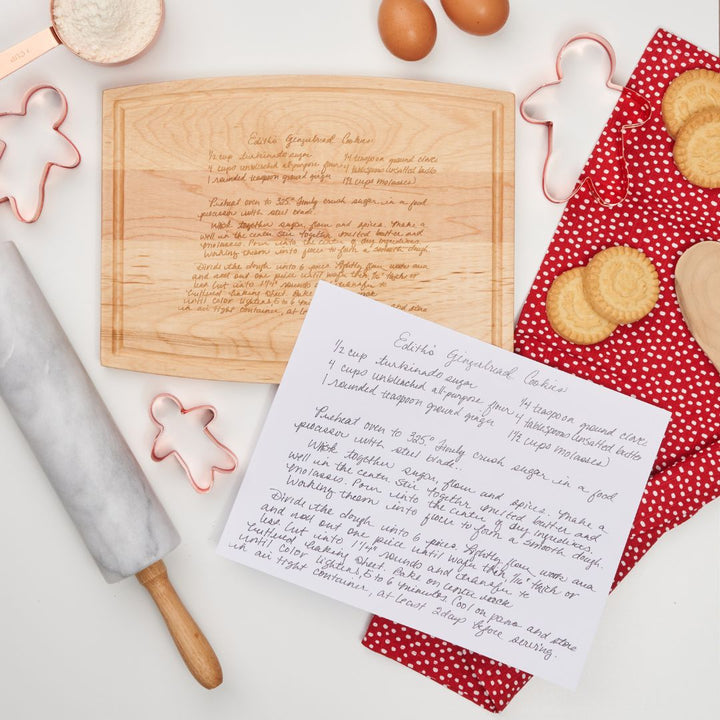 1 CUP
Edith's Gingerbread Cookies
1/2 cup turbinado sugar 1/4 teaspoon ground cloves
4 cups unbleached all-purpose flour 4 tablespoons unsalted butter
1 rounded teaspoon ground ginger 1½ cups molasses)
Preheat oven to 325° Finely crush sugar in a food
processor with steel blade.
Whisk together sugar, flour and spices. Make a
well in the center Stir together melted butter and
molasses. Pour into the center of dry ingredients.
Working them into flour to form a smooth dough.
Divide the dough into 6 pieces. Lightly flour work area
and roll out one piece until
Use Cut into 1 3/4" rounds and transfer to
buttered baking sheet. Bake
until color lightens, 5 to 6 and store
in air tight container, at
Edith's Gingerbread Cookies
1/2 cup turbinado sugar 1/4 teaspoon ground cloves
4 cups unbleached all-purpose flour 4 tablespoons unsalted butter
1 rounded teaspoon ground ginger 1½ cups molasses)
Preheat oven to 325° Finely crush sugar in a food
processor with steel blade.
Whisk together sugar, flour and spices. Make a
well in the center Stir together melted butter and
molasses. Pour into the center of dry ingredients.
Working them into flour to form a smooth dough.
Divide the dough into 6 pieces. Lightly flour work area
and roll out one piece until wafer thin, 1/16" thick or
less Cut into 1 3/4" rounds and transfer to
buttered baking sheet. Bake on center rack
until color lightens, 5 to 6 minutes. Cool on pans and store
in air tight container, at least 2 days before serving.